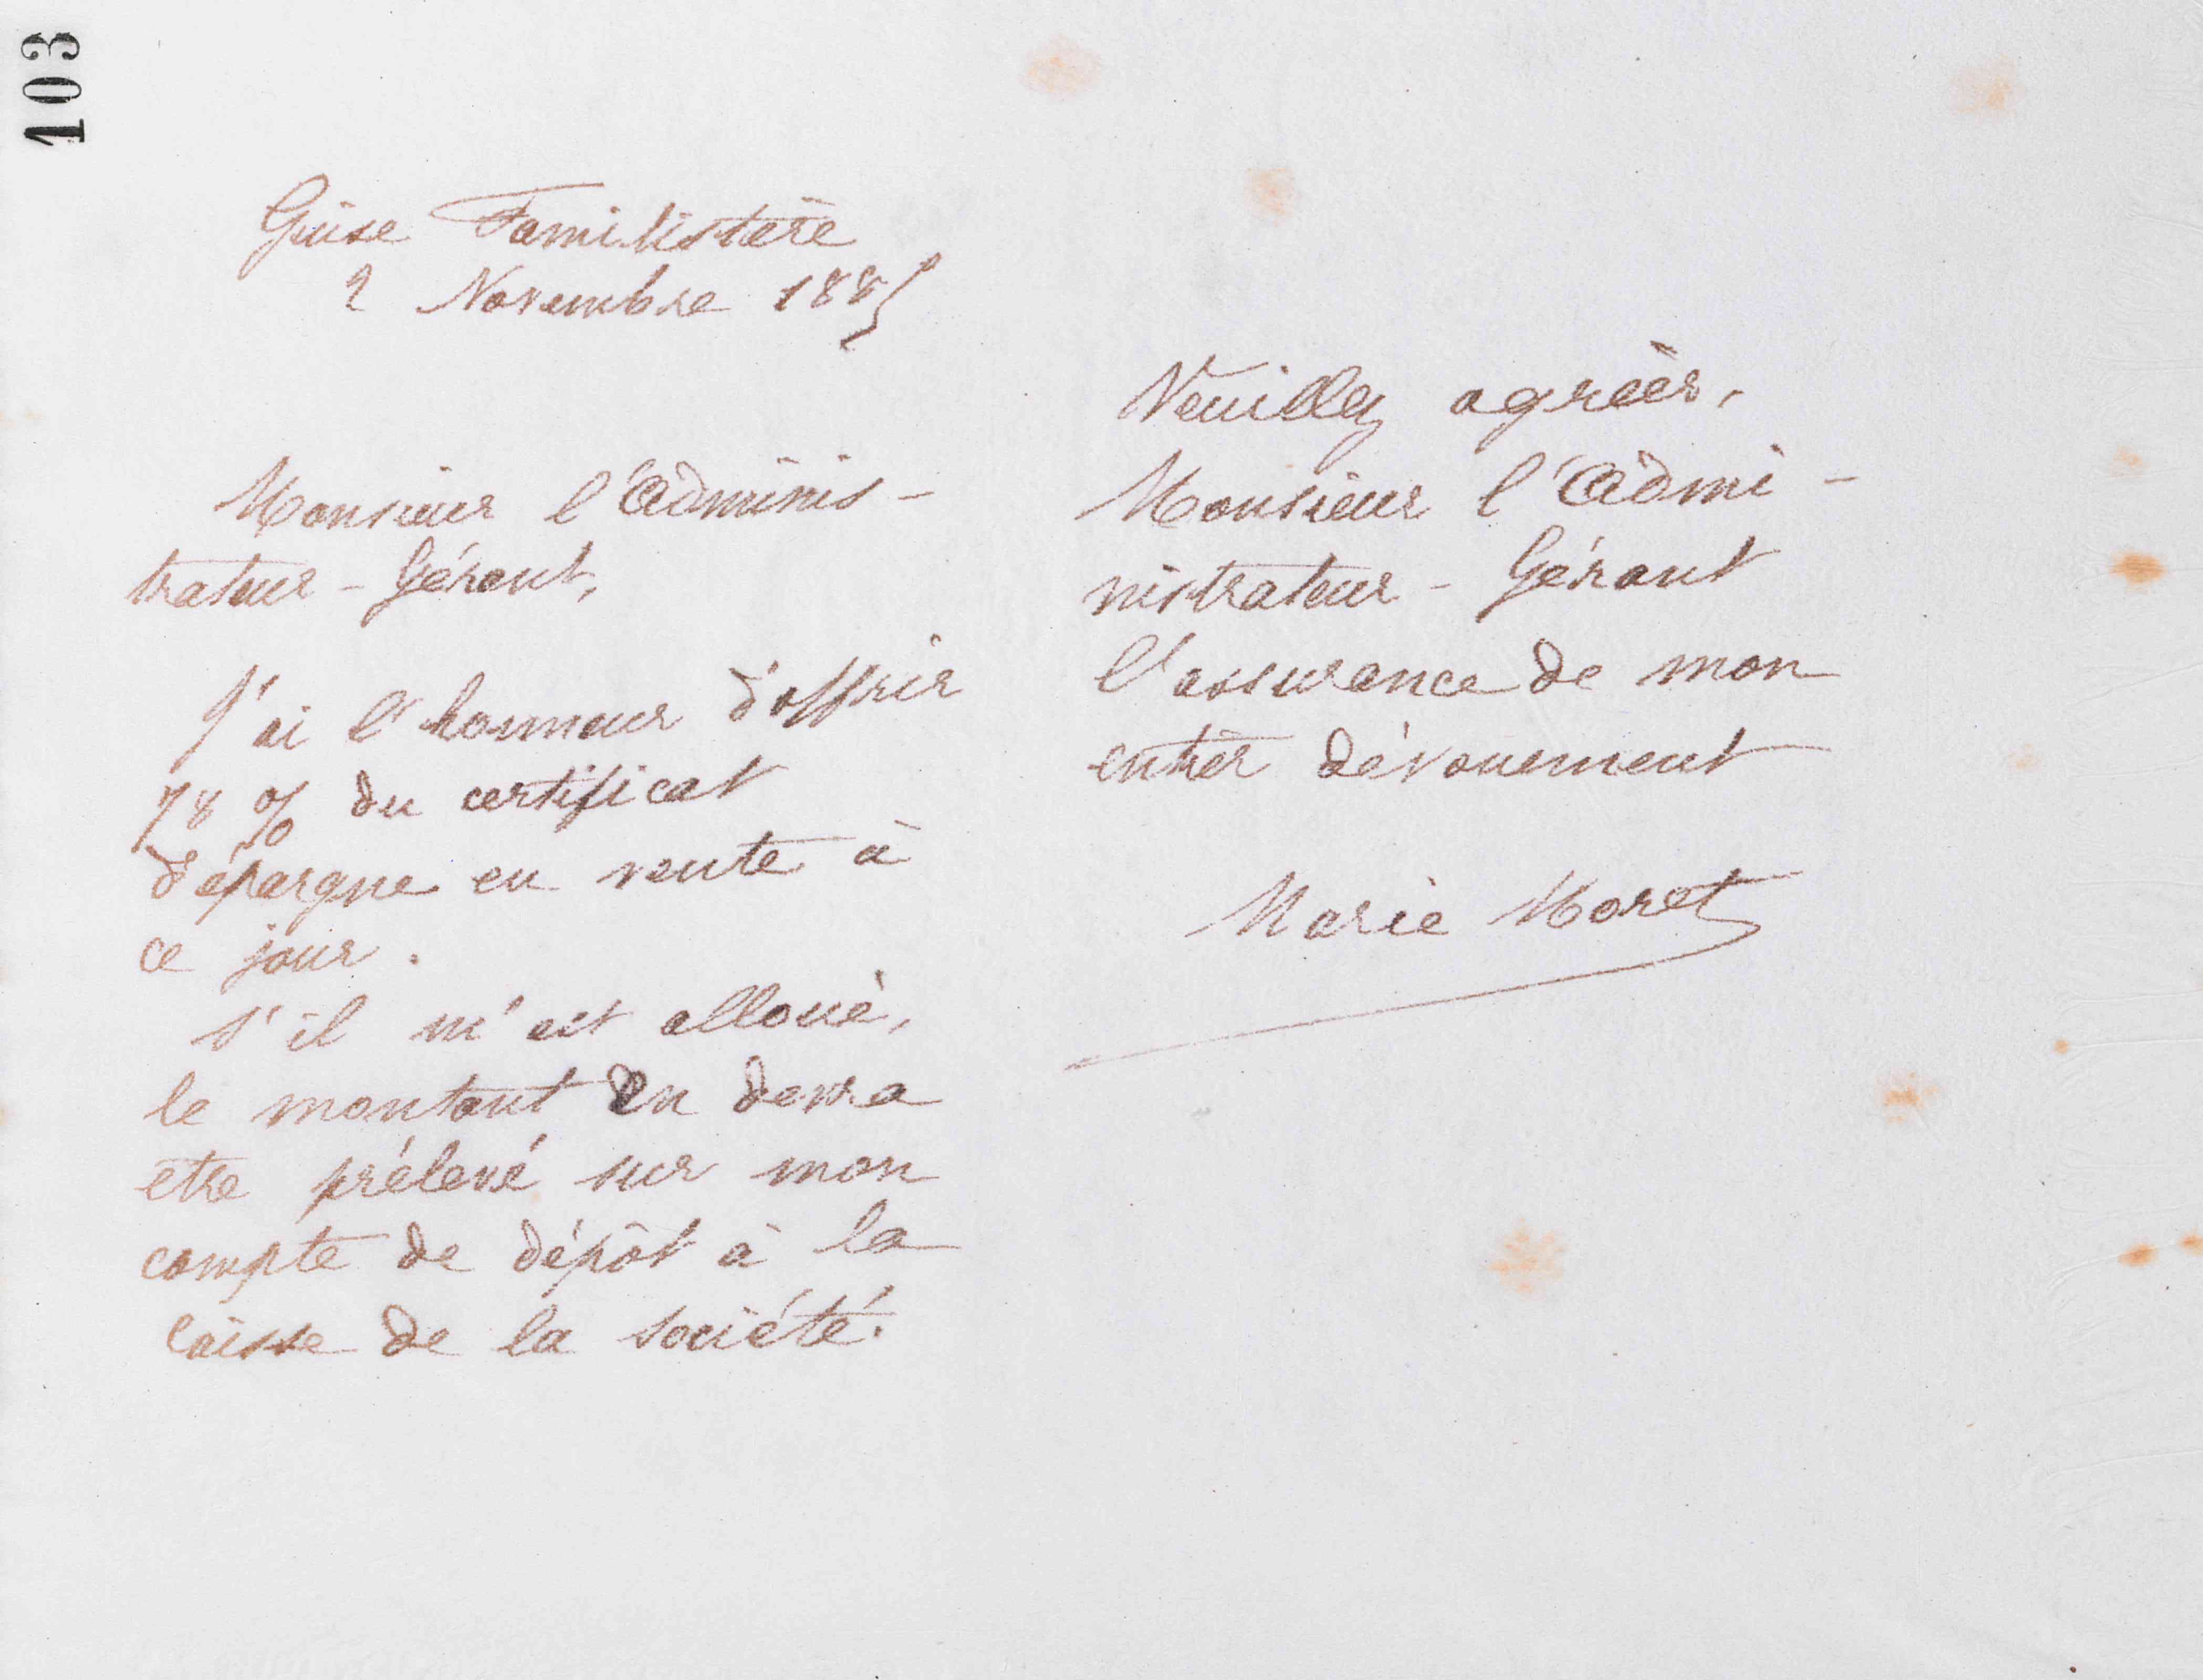 103
Guise Familistère
2 Novembre 1885
Monsieur l'Adminis-
trateur-Gérant,
J'ai l'honneur d'offrir
78 % du certificat
d'épargne en vente à
ce jour.
S'il m'est alloué,
le montant en devra
etre prélevé sur mon
compte de dépôt à la
caisse de la société.
Veuillez agréer,
Monsieur l'Admi-
nistrateur-Gérant
l'assurance de mon
entier dévouement
Marie Moret